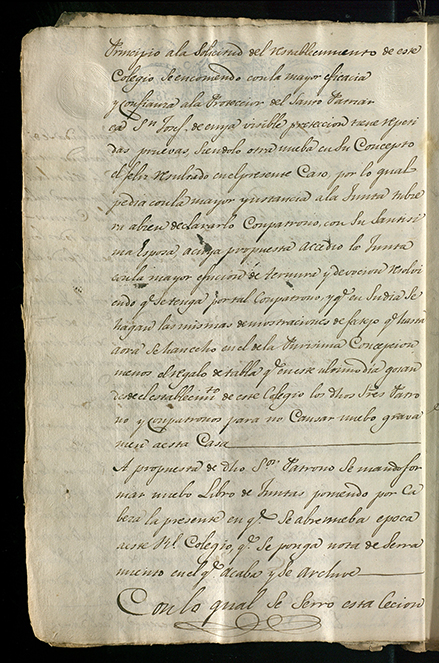 Principio a la Solicitud del Establecimiento de este
Colegio Se encomendo con la mayor eficacia
y Confianza a la Proteccion del Santo Patriar
ca Sn. Josef, de cuya visible proteccion tiene repeti
das pruevas, Siendolo otra nueba en Su Concepto
el feliz resultado en el presente Caso, por lo qual
pedia con la mayor instancia a la Junta tubie
ra a bien declararlo Conpatrono, con Su Santisi
ma Esposa, a cuya propuesta accedio la Junta
con la mayor efucion de ternura y devocion resolvi
endo qe. Se tenga por tal Conpatrono, y qe. en Su dia Se
hagan las mismas demostraciones de festejo qe. hasta
aora Se han echo en el de la Purisima Concepcion
menos el regalo de tabla qe. en este ultimo dia gosan
desde el establecimto. de este Colegio los dhos Sres. Patro
no y Conpatronos para no Causar nuebo grava
men a esta Casa
A propuesta de dho Sor. Patrono Se mando for
mar nuebo Libro de Juntas poniendo por Ca
beza la presente en qe. Se abre nueba epoca
a este Rl. Colegio, qe. Se ponga nota de Serra
miento en el qe. acaba y Se Archive
Con lo qual Se Serro esta Cecion